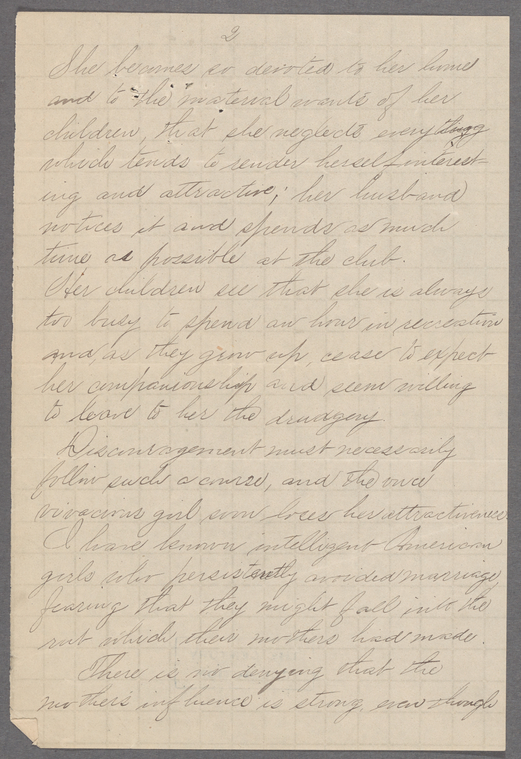 2
She becomes so devoted to her home
and to the material wants of her
children, that she neglects everything
which tends to render herself interest-
ing and attractive; her husband
notices it and spends as much
time as possible at the club.
Her children see that she is always
too busy to spend an hour in recreation
and, as they grow up, cease to expect
her companionship and seem willing
to leave to her the drudgery
Discouragement must necessarily
follow such a course, and the once
vivacious girl soon loses her attractiveness
I have known intelligent American
girls who persistently avoided marriage,
fearing that they might fall into the
rut which their mothers had made.
There is no denying that the
mother's influence is strong even though